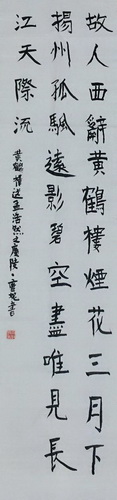 故人西辭黃鶴樓煙花三月下
揚州孤颿遠影碧空盡唯見長
江天際流
黃鶴樓送孟浩然之廣陵